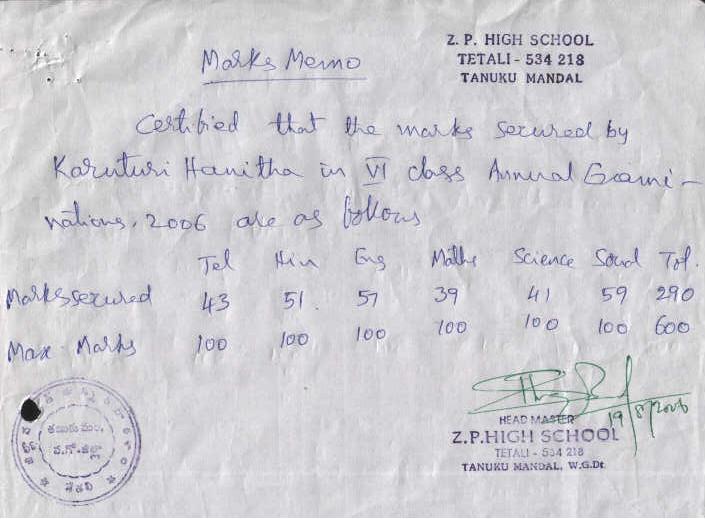 Z. P. HIGH SCHOOL
TETALI - 534 218
TANUKU MANDAL
Marks Memo
Certified that the marks secured by
Karuturi Hanitha in VI class Annual Exami-
nations, 2006 are as follows
Tel Hin Eng Maths Science Social Tot.
Marks secured 43 51. 57 39 41 59 290
Max. Marks 100 100 100 100 100 100 600
19/8/2006
HEAD MASTER
Z.P.HIGH SCHOOL
TETALI - 534 218
TANUKU MANDAL, W.G.Dt.
తణుకు మం.
ప.గో.జిల్లా
తేతలి